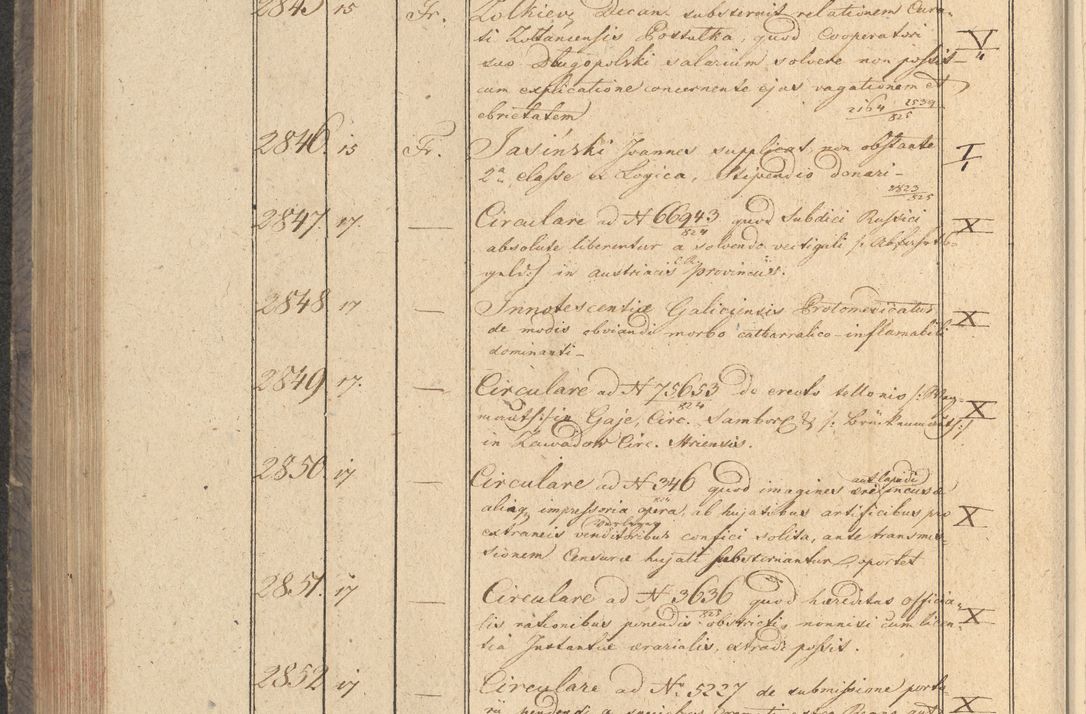 2845 15 Fr. Zolkiev, Decan. substernit relationem Cura-
ti Zoltancensis Postulka, quod Cooperatori V/4
suo Długopolski salarium solvere non possit-
cum explicatione concernente ejus vagationem et
ebrietatem 2164 2539/825
2846. 15 Fr. Jasiński Joannes supplicat, non obstante I/1
2da classe ex Logica, Stipendio donari- 2823/825
2847. 17. — Circulare ad N 66943/824 quod subdici Russici X
absolute liberentur a solvendo vectigali /: Abfahrts-
geld:/ in austriacis C.R. provinciis.
2848 17 — Innotescentiae Galiciensis Protomedicatus X
de modis obviandi morbo catharralico-inflamabili
dominanti-
2849 17. — Circulare ad N 75653/824 de erecto tollonio /: Weg-
mauth:/ in Gaje, Circ. Sambor & /: Brückenmauth:/ X
in Zawadow Circ. Striensis.
2850. 17 — Circulare ad N 346 quod imagines aeri incusae aut lapidi
aliaq. impressoria opera, ab hujatibus artificibus pro X
extraneis venditoribus Verleger confici solita, ante transmis-
sionem Censurae hujati substernantur oportet
2851. 17 — Circulare ad N 3636/825 quod haereditas officia-
lis rationibus ponendis obstricti, nonnisi cum licen- X
tia Instantiae aerarialis, extradi possit.
2852 17 — Circulare ad No. 5227 de submissione porto
X